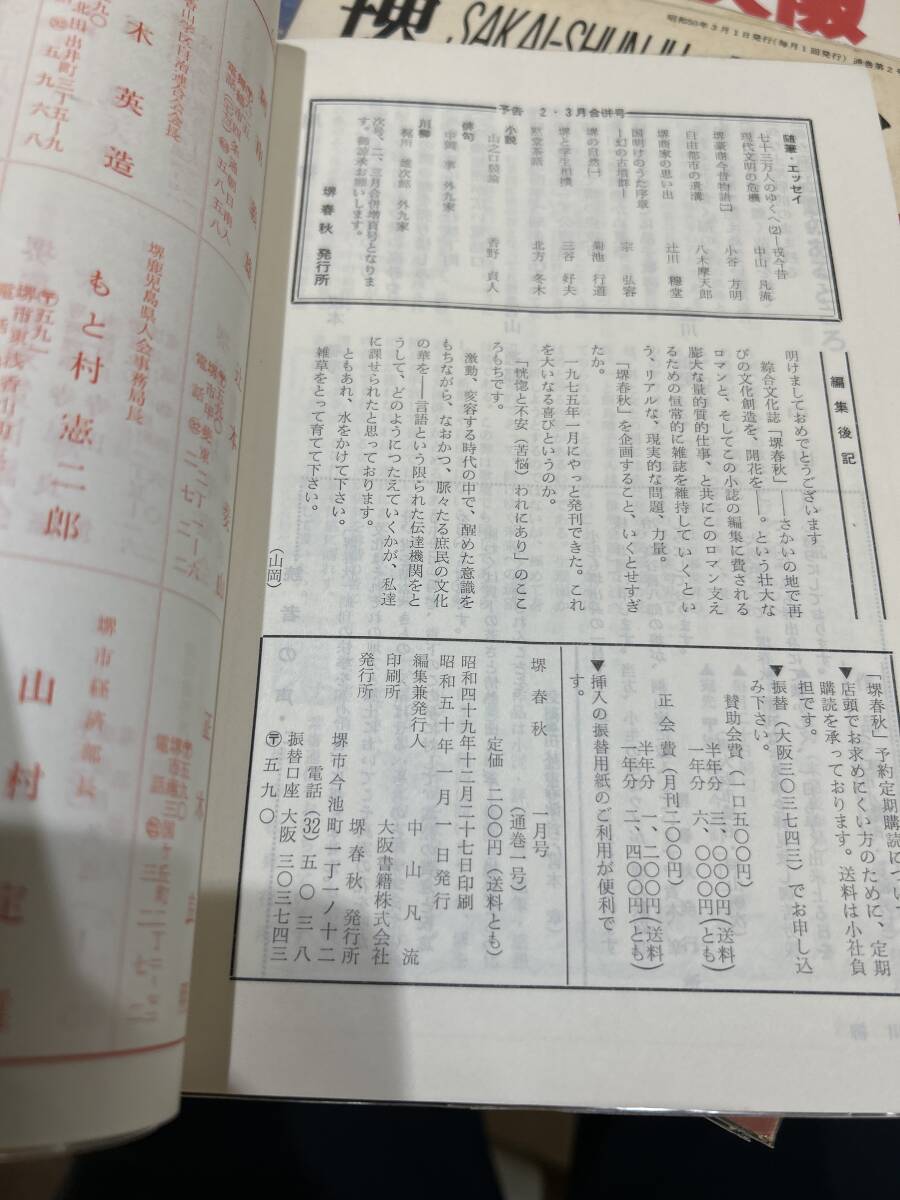 SAKAI-SHUNJU
昭和50年3月1日発行(毎月1回発行)
予告 2・3月合併号
随筆・エッセイ
七十三万人のゆくへ(2)―戎今昔
中山 凡流
現代文明の危機
小谷 方明
堺豪商今昔物語(二)
八木摩天郎
自由都市の遺溝
辻川 穆堂
堺商家の思い出
宗 弘容
国明けのうた序章
―幻の古墳群―
菊池 行道
堺の自然(一)
三谷 好夫
堺と学生相撲
北方 冬木
黙堂茶話
小説
山之口貘論
香野 貞人
俳句
中岡 草 外九家
川柳
梶川 雄次郎 外九家
次号、二、三月合併増頁号となりま
す。御諒承お願いします。
堺春秋 発行所
編集後記
明けましておめでとうございます
綜合文化誌「堺春秋」――さかいの地で再
びの文化創造を、開花を――。という壮大な
ロマンと、そしてこの小誌の編集に費される
膨大な量的質的仕事、と共にこのロマン支え
るための恒常的に雑誌を維持していくとい
う、リアルな、現実的な問題、力量。
「堺春秋」を企画すること、いくとせすぎ
たか。
一九七五年一月にやっと発刊できた。これ
を大いなる喜びというのか。
「恍惚と不安(苦悩)われにあり」のここ
ろもちです。
激動、変容する時代の中で、醒めた意識を
もちながら、なおかつ、脈々たる庶民の文化
の華を――言語という限られた伝達機関をと
うして、どのようにつたえていくかが、私達
に課せられたと思っております。
ともあれ、水をかけて下さい。
雑草をとって育てて下さい。
(山岡)
「堺春秋」予約定期購読につい
▼店頭でお求めにくい方のために、定期
購読を承っております。送料は小社負
担です。
▼振替(大阪三〇三七四三)でお申し込
み下さい。
賛助会費(一口五〇〇円)
半年分 三、〇〇〇円(送料
一年分 六、〇〇〇円(とも)
正会費(月刊二〇〇円)
半年分 一、二〇〇円(送料
一年分 二、四〇〇円(とも)
▼挿入の振替用紙のご利用が便利で
す。
堺春秋 一月号
(通巻一号)
定価 二〇〇円(送料とも)
昭和四十九年十二月二十七日印刷
昭和五十年一月一日発行
編集兼発行人 中山凡流
印刷所 大阪書籍株式会社
発行所 堺春秋発行所
堺市今池町一丁一ノ十二
電話(32)五〇三八
振替口座大阪 三〇三七四三
〒五九〇
木英造
堺鹿児島県人会事務局長
もと村憲二郎
堺市経済部長
山村定